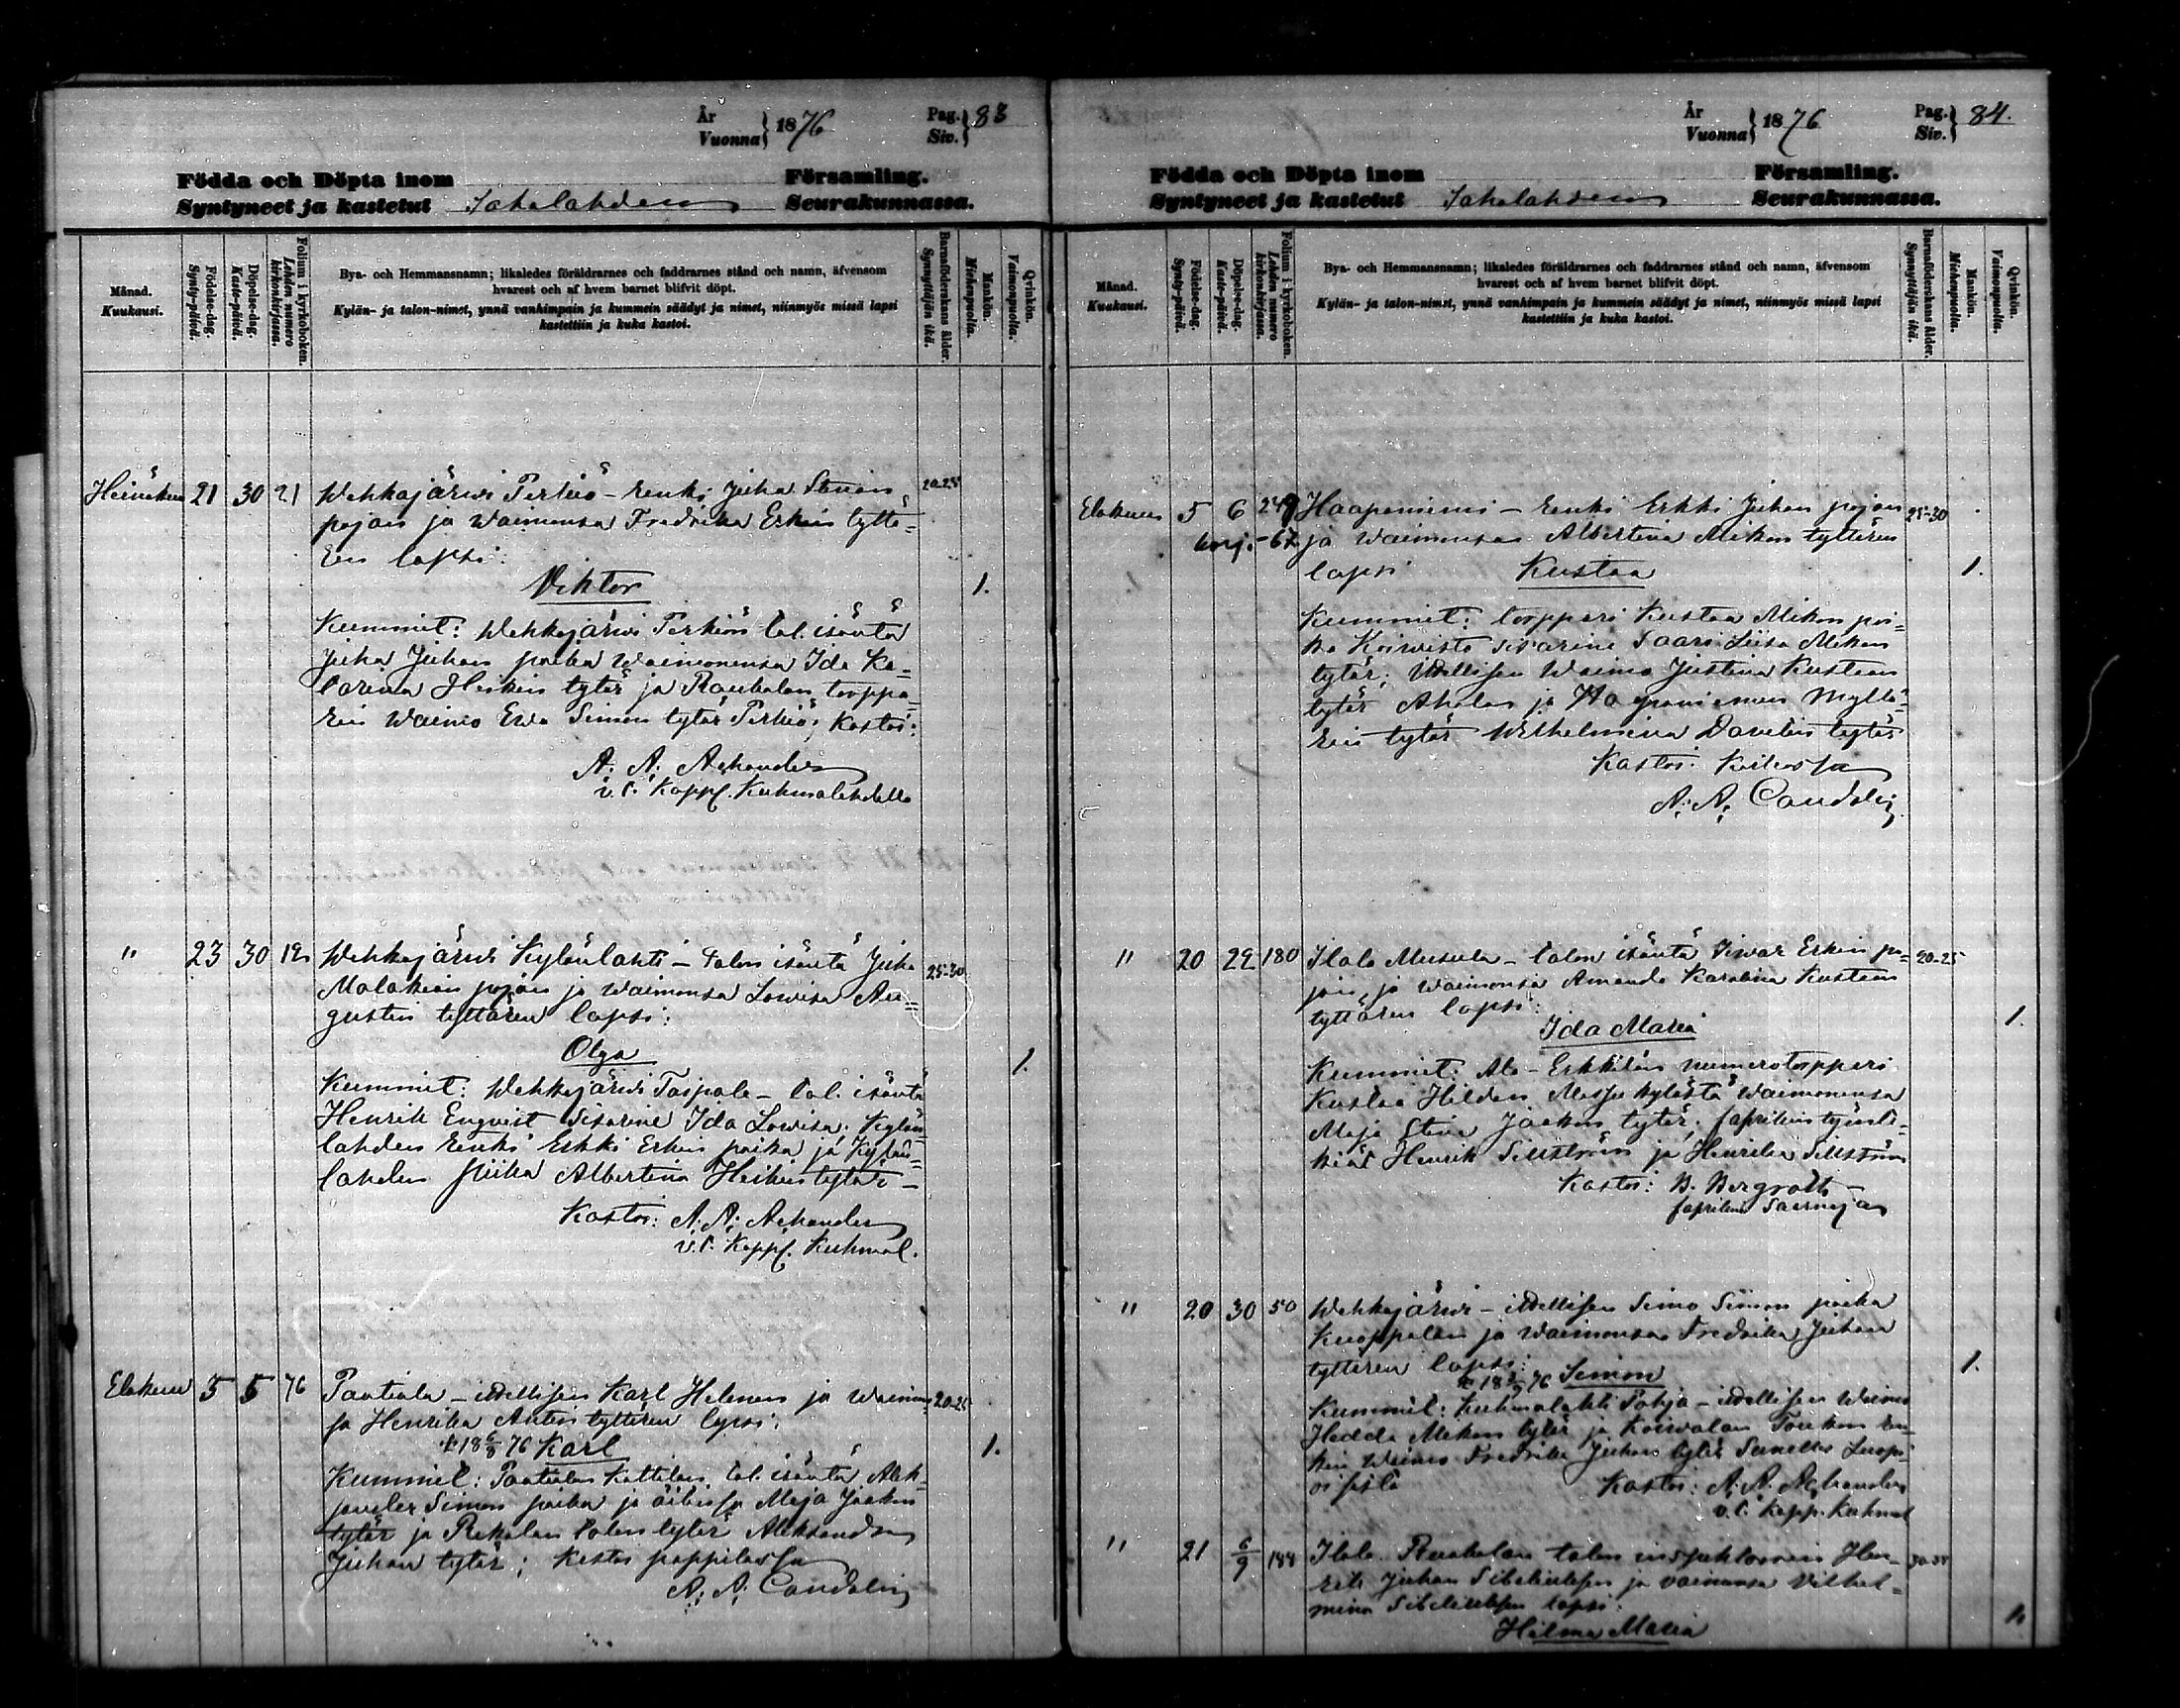 År
Vuonna } 1876
Pag.
Siv. } 83
Födda och Döpta inom Församling.
Syntyneet ja kastetut Sahalahden Seurakunnassa.
Månad.
Kuukausi.
Födelse-dag.
Synty-päivä.
Döpelse-dag.
Kaste-päivä.
Folium i kyrkoboken.
Lehden numero
kirkonkirjassa.
Bya- och Hemmansnamn; likaledes föräldrarnes och faddrarnes stånd och namn, äfvensom
hvarest och af hvem barnet blifvit döpt.
Kylän- ja talon-nimet, ynnä vanhimpain ja kummein säädyt ja nimet, niinmyös missä lapsi
kastettiin ja kuka kastoi.
Barnaföderskans ålder.
Synnyttäjän ikä.
Mankön.
Miehenpuolia.
Qvinkön.
Vaimonpuolia.
Heinäkuu 21 30 21 Wehkajärwi Perkiö - renki Juha 20-25
pojan ja waimonsa Fredrika Erkin tyttä=
ren lapsi:
Viktor 1.
Kummit: Wehkajärwi Perkiön tal. isäntä
Juha Juhan poika waimonensa Ida Ka=
tarina Heikin tytär ja Rauhalan torppa=
rin waimo Ewa Simon tytär Perkiö; Kastoi:
A. A. Achander
v. t. Kappl. Kuhmalahdella
" 23 30 12 Wehkajärwi Kylänlahti - talon isäntä Juha 25-30
Malakian pojan ja waimonsa Lowisa Au=
gustin tyttären lapsi:
Olga 1.
Kummit: Wehkajärwi Taipale - tal. isäntä
Henrik Enqvist sisarine Ida Lowisa; Kylän=
lahden renki Erkki Erkin poika ja Kylän=
lahden piika Albertina Heikin tytär -
Kastoi: A. A. Achander
v. t. Kappl. Kuhmal.
Elokuu 5 5 76 Pentiala - itsellisen Karl Helenen ja waimon= 20-25
sa Henrika Antin tyttären lapsi:
† 18 6/8 76 Karl 1.
Kummit: Kattilan tal. isäntä Alek=
sander Simon poika ja äitinsä Maja Jaakon
tytär ja Pekalan talon tytär Aleksandra
Juhan tytär; Kastoi pappilassa
A. A. Candolin
År
Vuonna } 1876
Pag.
Siv. } 84.
Födda och Döpta inom Församling.
Syntyneet ja kastetut Sahalahden Seurakunnassa.
Månad.
Kuukausi.
Födelse-dag.
Synty-päivä.
Döpelse-dag.
Kaste-päivä.
Folium i kyrkoboken.
Lehden numero
kirkonkirjassa.
Bya- och Hemmansnamn; likaledes föräldrarnes och faddrarnes stånd och namn, äfvensom
hvarest och af hvem barnet blifvit döpt.
Kylän- ja talon-nimet, ynnä vanhimpain ja kummein säädyt ja nimet, niinmyös missä lapsi
kastettiin ja kuka kastoi.
Barnaföderskans ålder.
Synnyttäjän ikä.
Mankön.
Miehenpuolia.
Qvinkön.
Vaimonpuolia.
Elokuu 5 6 249 Haapaniemi - renki Erkki Juhan pojan 25-30
-67 ja waimonsa Albertina Mikon tyttären
lapsi Kustaa 1.
Kummit: torppari Kustaa Mikon poi=
ka Koiwisto sisarine Saara Liisa Mikon
tytär; itsellisen waimo Justina Kustaan
tytär Ahola ja Haapaniemen myllä=
rin tytär Wilhelmina Davidin tytär
Kastoi: Kirkossa
A. A. Candolin
" 20 22 180 Ilala Musula - talon isäntä Iiwar Erkin po= 20-25
jan ja waimonsa Amanda Karolina Kustaan
tyttären lapsi:
Ida Maria 1.
Kummit: Ala-Erkkilän numerotorppari
Kustaa Hilden Messukylästä waimonensa
Maja Stina Jaakon tytär; faprikin työnte=
kiät Henrik Sillström ja Henrika Sillström
Kastoi: B. Bergroth -
faprikin Saarnaja
" 20 30 50 Wehkajärwi - itsellisen Simo Simon poika
Kuoppalan ja waimonsa Fredrika Juhan
tyttären lapsi:
Simon 1.
Kummit: Kuhmalahti Pohja - itsellisen waimo
Hedda Mikon tytär ja Koiwalan Toukon ren=
kin waimo Fredrika Juhan tytär Luopi=
oisista Kastoi: A. A. Achander
v. t. Kapp. Kuhmal
" 21 6/9 188 Ilala Ruokolan talon inspehtorin Hen=
rik Juhan Sibeliuksen ja vaimonsa Vilhel=
mina Sibeliuksen lapsi:
Hilma Maria 1.